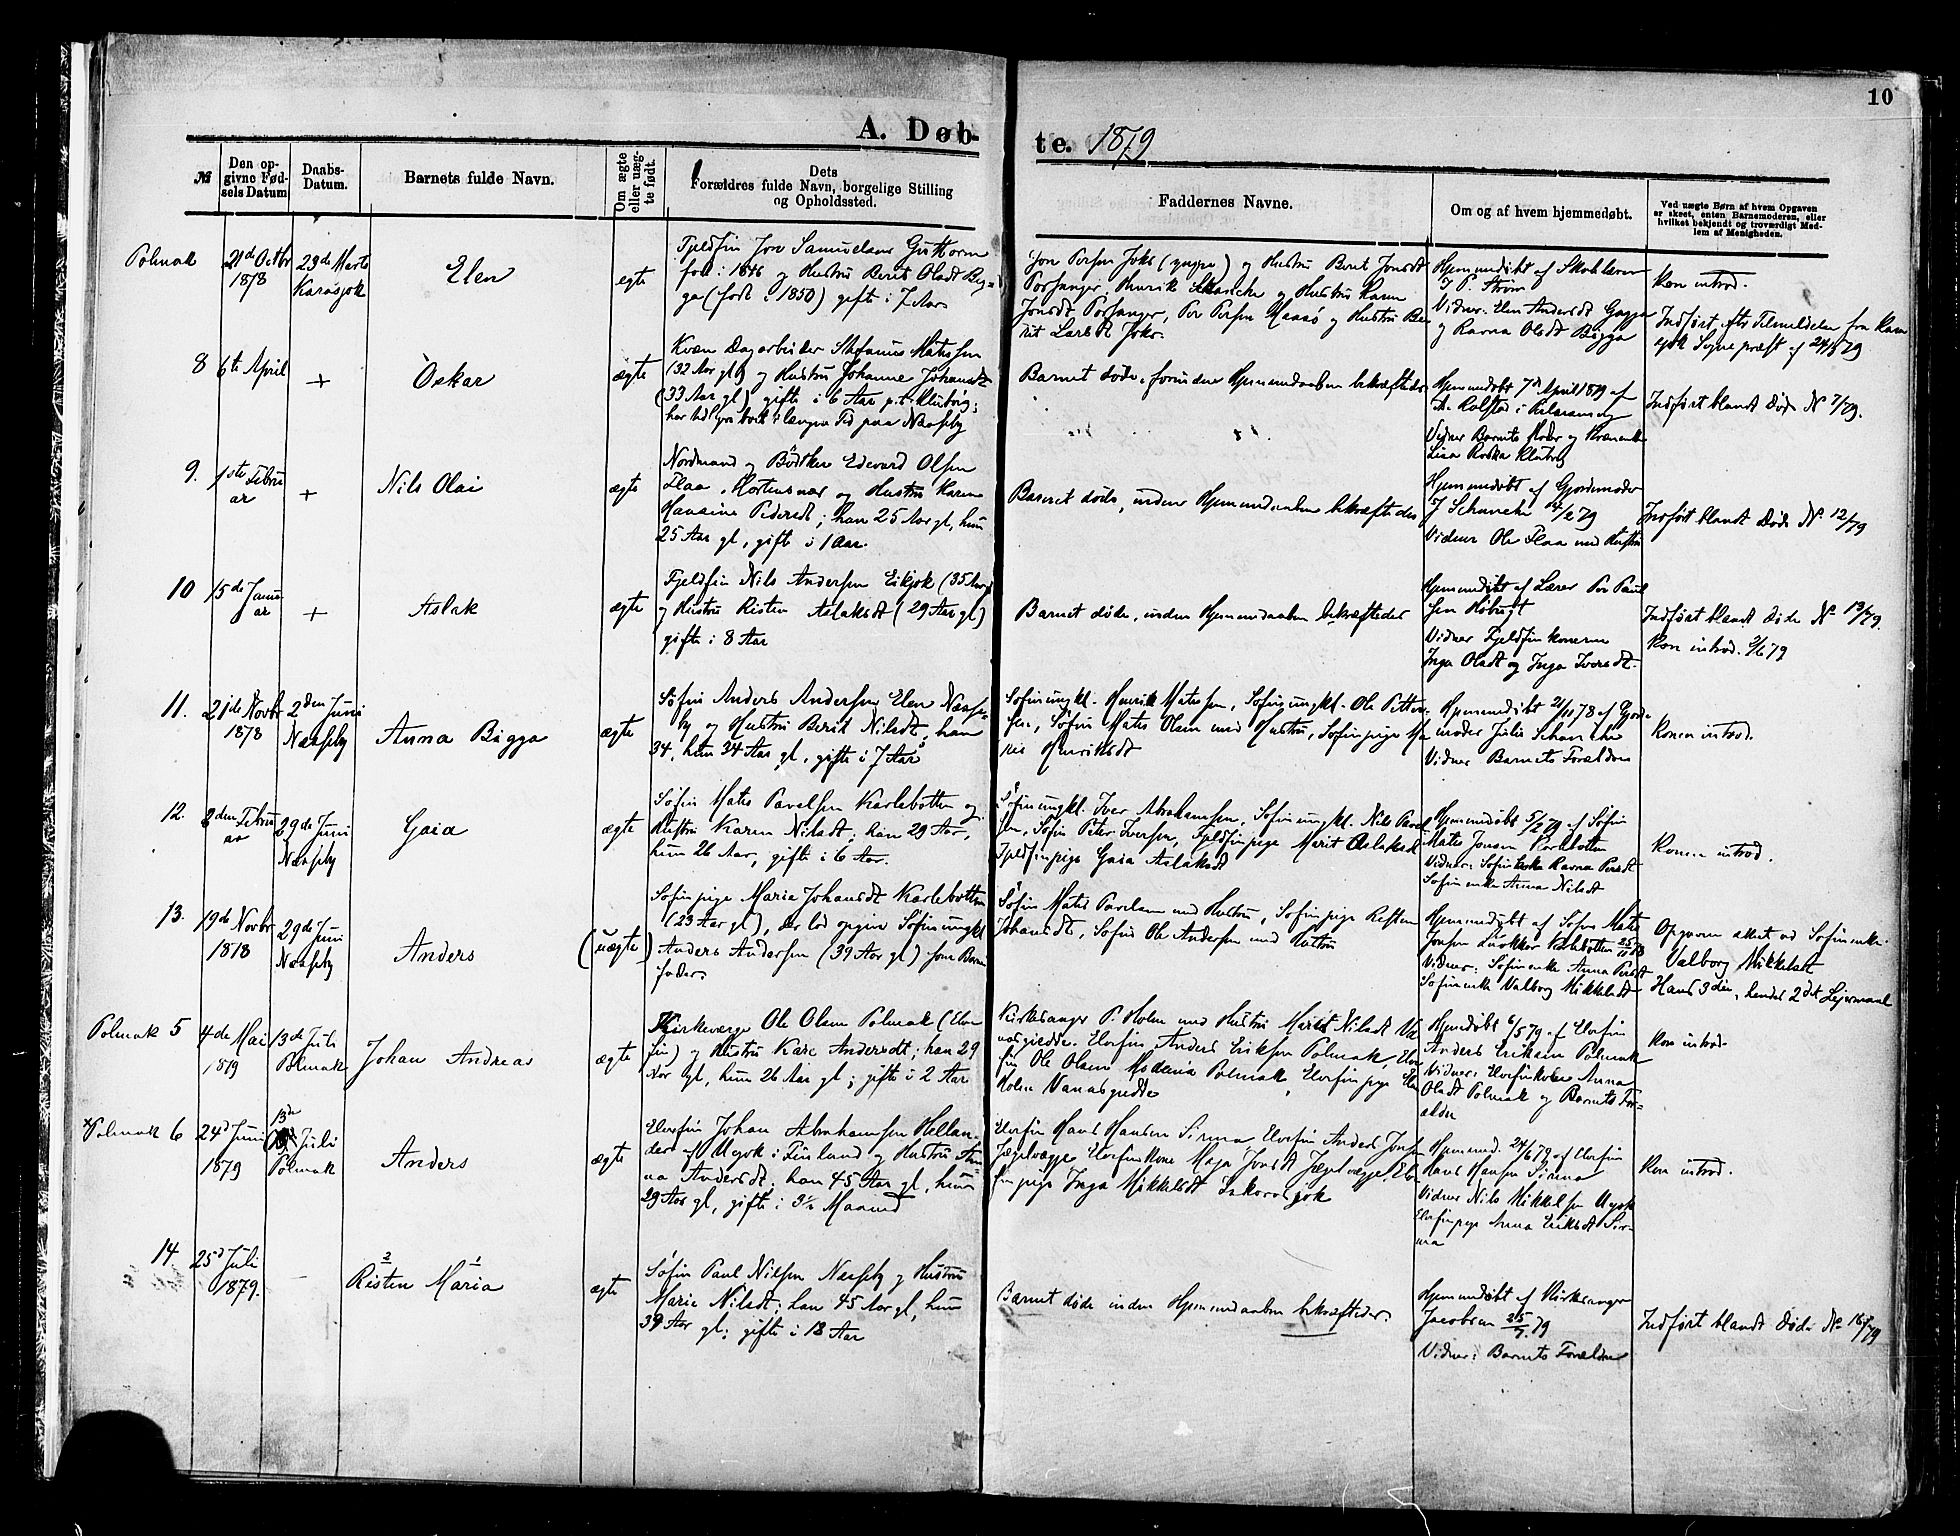 10
A. Døbte. 1879
№
Den opgivne Fødsels Datum
Daabs-Datum.
Barnets fulde Navn.
Om ægte eller uægte født.
Dets Forældres fulde Navn, borgelige Stilling og Opholdssted.
Faddernes Navne.
Om og af hvem hjemmedøbt.
Ved uægte Børn af hvem Opgaven er skeet, enten Barnemoderen, eller hvilket bekjendt og troværdigt Medlem af Menigheden.
Polmak
21d Octbr 1878
23de Marts Karasjok
Elen
egte
Fjeldfin Jon Samuelsen Guttorm
født i 1846 og Hustru Berit Olsdt Big-
ga (født i 1850) gifte i 7 Aar
Jon Persen Joks (yngre) og Hustru Berit Jonsdt
Porsanger, Henrik Schancke og Hustru Karen
Jonsdt Porsanger, Per Persen Maasø og Hustru Be-
rit Larsdt Joks.
Hjemmedøbt af Skolelærer
J. P. Strøm
Vidner: Elen Andersdt Gagga
og Ravna Olsdt Bigga
Kon introd.
Indført efter Tilmeldelse fra Karasjok Sognepræst af 24/3 79
8
6te April
+
Oskar
ægte
Kvæn Dagarbeider Stefanus Matissen
(32 Aar gl) og Hustru Johanne Johansdt
(33 Aar gl) gifte i 6 Aar p.t. Klubvig;
Barnet døde, forinden Hjemmedaaben bekræftedes
Hjemmedøbt 7de April 1879 af
Vidner Barnets Moder og
Indført blandt Døde N 7/79.
9.
1ste Februar
+
Nils Olai
ægte
Nordmand og Bødtker Edevard Olsen
Flaa, Mortensnæs og Hustru Karen
Hansine Pedersdt; han 25 Aar gl, hun
25 Aar gl, gifte i 1 Aar.
Barnet døde, inden Hjemmedaaben bekræftedes
Hjemmedøbt af Gjordemoder
J Schancke 14/2 79
Vidner Ole Flaa med Hustru
Indført blandt Døde No 12/79
10
15de Januar
+
Aslak
ægte
Fjeldfin Nils Andersen Eikjok (35 Aar gl)
og Hustru Risten Aslaksdt (29 Aar gl)
gifte i 8 Aar
Barnet døde, inden Hjemmedaaben bekræftedes
Hjemmedøbt af Lærer Per Paul
sen Høbugt
Vidner Fjeldfinkonerne
Inga Olsdt og Inga Iversdt.
Indført blandt Døde No 13/79.
Kon introd. 2/6 79
11.
21de Novbr 1878
2den Juni Næsseby
Anna Bigga
ægte
Søfin Anders Andersen Elen Næsse-
by og Hustru Berit Nilsdt, han
34, hun 34 Aar gl, gifte i 7 Aar
Søfinungkl. Henrik Matissen, Søfinungkl. Ole Pitter-
sen, Søfin Matis Olsen med Hustru, Søfinpige Ma
Henriksdt
Hjemmedøbt 21/11 78 af Gjorde-
moder Julie Schancke
Vidner Barnets Forældre
Konen introd.
12.
2den Februar
29de Juni Næsseby
Gaia
ægte
Søfin Matis Pavelsen Karlebotten og
Hustru Karen Nilsdt; han 29 Aar,
hun 26 Aar, gifte i 6 Aar.
Søfinungkl. Iver Abrahamsen, Søfinungkl. Nils Pavel
sen, Søfin Peter Iversen, Fjeldfinpige Marit Aslaksdt
Fjeldfinpige Gaia Aslaksdt
Hjemmedøbt 5/2 79 af Søfin
Matis Jonsen Karlebotten
Vidner: Søfinenke Ravna Persdt
Søfinenke Anna Nilsdt
Konen introd.
13.
19de Novbr 1878
29de Juni Næsseby
Anders
(uægte)
Søfinpige Maria Johansdt Karlebotten
(23 Aar gl), der lod opgive Søfinungkl
Anders Andersen (39 Aar gl) som Barne
fader
Søfin Matis Pavelsen med Hustru, Søfinpige Risten
Johansdt, Søfin Ole Andersen med Hustru
Hjemmedøbt af Søfin Matis
Jonsen Karlebotten 25/11 78
Vidner: Søfinenke Anna Persdt
Søfinenke Valborg Mikkelsdt
Opgaven attest. ad Søfinenke
Valborg Mikkelsdt
Hans 3die, hendes 2det Leiermaal
Polmak 5
4de Mai 1879
13de Juli Polmak
Johan Andreas
ægte
Kirkeværge Ole Olsen Polmak (Elve
fin) og Hustru Kare Andersdt; han 29
Aar gl, hun 26 Aar gl; gifte i 2 Aar
Kirkesanger P. Holm med Hustru Marit Nilsdt Va-
nasgiedde. Elvefin Anders Eriksen Polmak, Elve
fin Ole Olsen Polmak, Elvefinpige Elen
Holm Vanasgiedde
Hjemdøbt 6/5 79 af Elvefin
Anders Eriksen Polmak
Vidner: Elvefinkone Anna
Olsdt Polmak og Barnets For-
ældre
Kon introd.
× Polmak 6
24d Juni 1879
13de Juli Polmak
Anders
ægte
Elvefin Johan Abrahamsen Hellan-
der af Utsjok i Finland og Hustru An-
na Andersdt; han 45 Aar gl, hun
29 Aar gl, gifte i 3½ Maaned
Elvefin Hans Hansen Sirma Elvefin Anders Jonsen
Jægelvægge Elvefinkone Maja Jonsdt Jægelvægge, Elve
finpige Inga Mikkelsdt
Hjemmed. 24/6 79 af Elvefin
Hans Hansen Sirma
Vidner Nils Mikkelsen Utsjok
Elvefinpige Anna Eriksdt Sir-
ma
Kon introd.
14.
25d Juli 1879.
–
2 1
Risten Maria
ægte
Søfin Paul Nilsen Næsseby og Hustru
Marie Nilsdt; han 45 Aar gl, hun
39 Aar gl; gifte i 13 Aar
Barnet døde inden Hjemmedaaben bekræftedes.
Hjemmedøbt af Kirkesanger
Jacobsen 25/7 79
Vidner: Barnets Forældre
Indført blandt Døde No 16/79